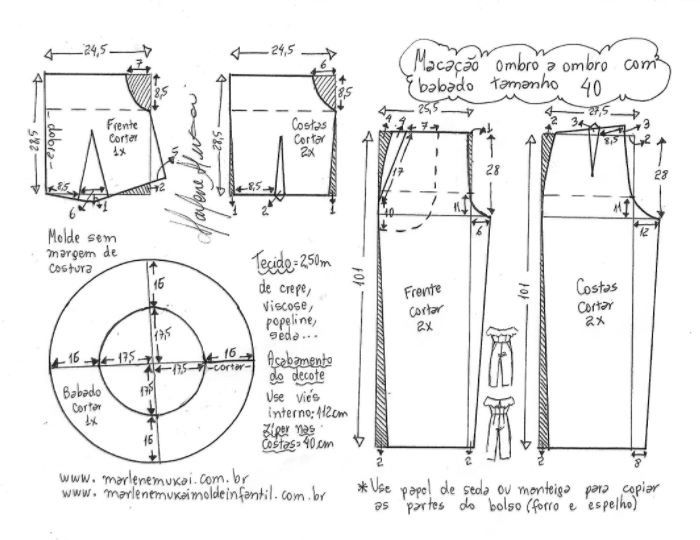 Macacão ombro a ombro com
babado tamanho 40
24,5
7
8,5
28,5
dobra
Frente
Cortar
1x
5
8,5
2
6
1
24,5
6
8,5
28,5
Costas
Cortar
2x
8,5
1
2
1
Marlene Mukai
Molde sem
margem de
costura
16
17,5
16
17,5
17,5
16
cortar
17,5
16
Babado
Cortar
1x
Tecido=2,50m
de crepe,
viscose,
popeline,
seda...
Acabamento
do decote
Use viés
interno=112cm
Zíper nas
Costas=40cm
25,5
4
4
7
1
17
28
10
11
6
101
Frente
cortar
2x
2
2
27,5
2
3
3
8,5
2
28
11
12
101
Costas
Cortar
2x
2
2
8
www.marlenemukai.com.br
www.marlenemukaimoldeinfantil.com.br
*Use papel de seda ou manteiga para copiar
as partes do bolso (forro e espelho)